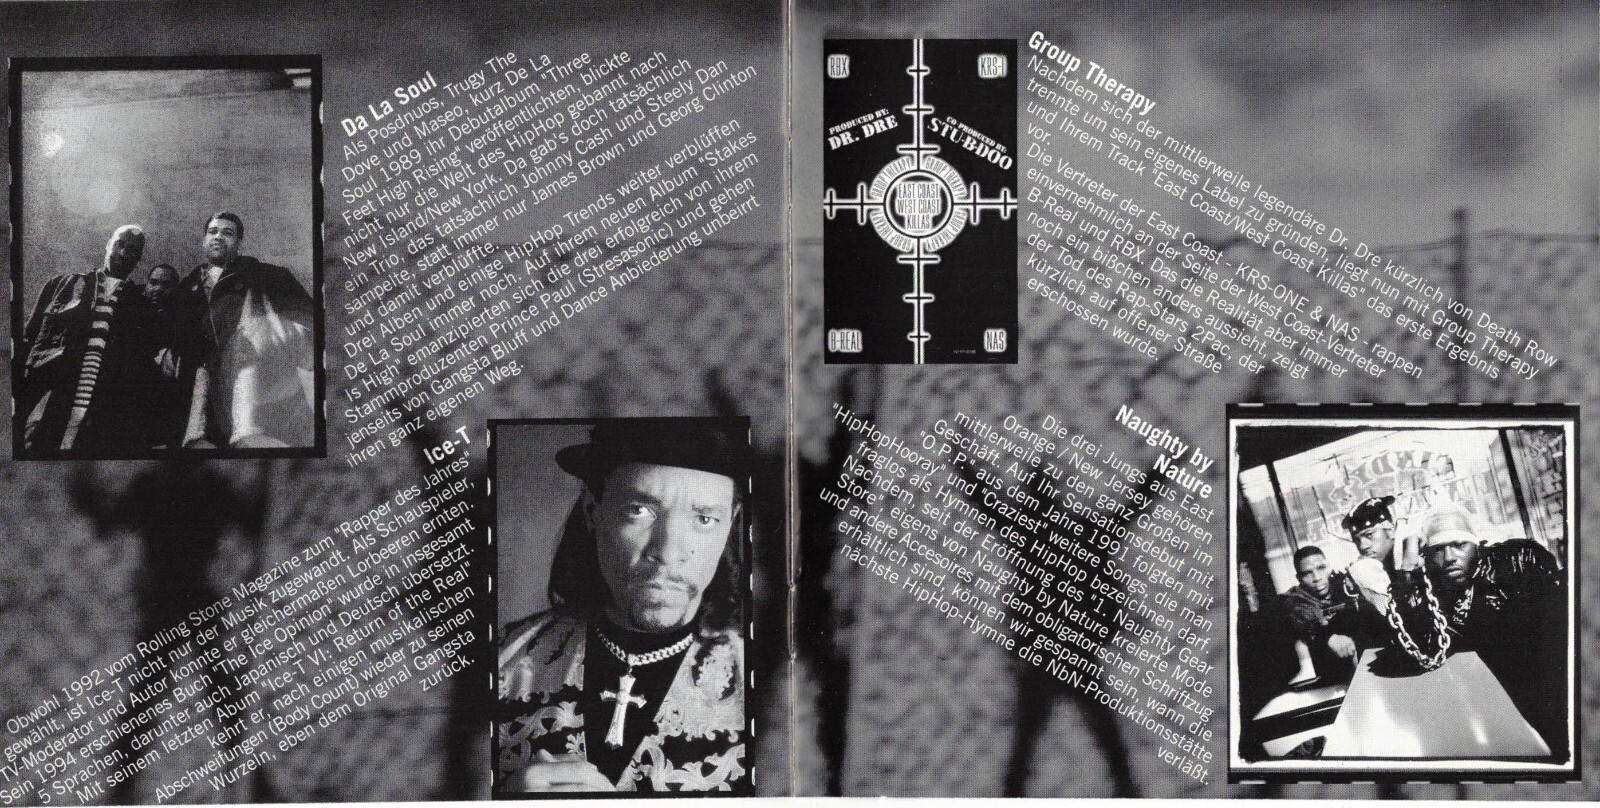 Da La Soul
Als Posdnuos, Trugy The
Dove und Maseo, kurz De La
Soul 1989 ihr Debutalbum "Three
Feet High Rising" veröffentlichten, blickte
nicht nur die Welt des HipHop gebannt nach
New Island/New York. Da gab's doch tatsächlich
ein Trio, das tatsächlich Johnny Cash und Steely Dan
sampelte, statt immer nur James Brown und Georg Clinton
und damit verblüffte.
Drei Alben und einige HipHop Trends weiter verblüffen
De La Soul immer noch. Auf ihrem neuen Album "Stakes
Is High" emanzipierten sich die drei erfolgreich von ihrem
Stammproduzenten Prince Paul (Stresasonic) und gehen
jenseits von Gangsta Bluff und Dance Anbiederung unbeirrt
ihren ganz eigenen Weg.
Ice-T
Obwohl 1992 vom Rolling Stone Magazine zum "Rapper des Jahres"
gewählt, ist Ice-T nicht nur der Musik zugewandt. Als Schauspieler,
TV-Moderator und Autor konnte er gleichermaßen Lorbeeren ernten.
Sein 1994 erschienenes Buch "The Ice Opinion' wurde in insgesamt
5 Sprachen, darunter auch Japanisch und Deutsch übersetzt.
Mit seinem letzten Abum "Ice-T VI: Return of the Real"
kehrt er, nach einigen musikalischen
Abschweifungen (Body Count) wieder zu seinen
Wurzeln, eben dem Original Gangsta
zurück.
RBX
KRS-1
PRODUCED BY:
DR. DRE
CO-PRODUCED BY:
STU-B-DOO
GROUP THERAPY
GROUP THERAPY
EAST COAST
WEST COAST
KILLAS
GROUP THERAPY
GROUP THERAPY
B-REAL
NAS
Group Therapy
Nachdem sich der mittlerweile legendäre Dr. Dre kürzlich von Death Row
trennte um sein eigenes Label zu gründen, liegt nun mit Group Therapy
und Ihrem Track "East Coast/West Coast Killas" das erste Ergebnis
vor.
Die Vertreter der East Coast - KRS-ONE & NAS - rappen
einvernehmlich an der Seite der West Coast-Vertreter
B-Real und RBX. Das die Realität aber immer
noch ein bißchen anders aussieht, zeigt
der Tod des Rap-Stars 2Pac, der
kürzlich auf offener Straße
erschossen wurde.
Naughty by
Nature
Die drei Jungs aus East
Orange / New Jersey gehören
mittlerweile zu den ganz Großen im
Geschäft. Auf Ihr Sensationsdebut mit
"O.P.P." aus dem Jahre 1991 folgten mit
"HipHopHooray" und "Craziest" weitere Songs, die man
fraglos als Hymnen des HipHop bezeichnen darf.
Nachdem, seit der Eröffnung des '1. Naughty Gear
Store", eigens von Naughty by Nature kreierte Mode
und andere Accesoires mit dem obligatorischen Schriftzug
erhältlich sind, können wir gespannt sein, wann die
nächste HipHop-Hymne die NbN-Produktionsstätte
verläßt.